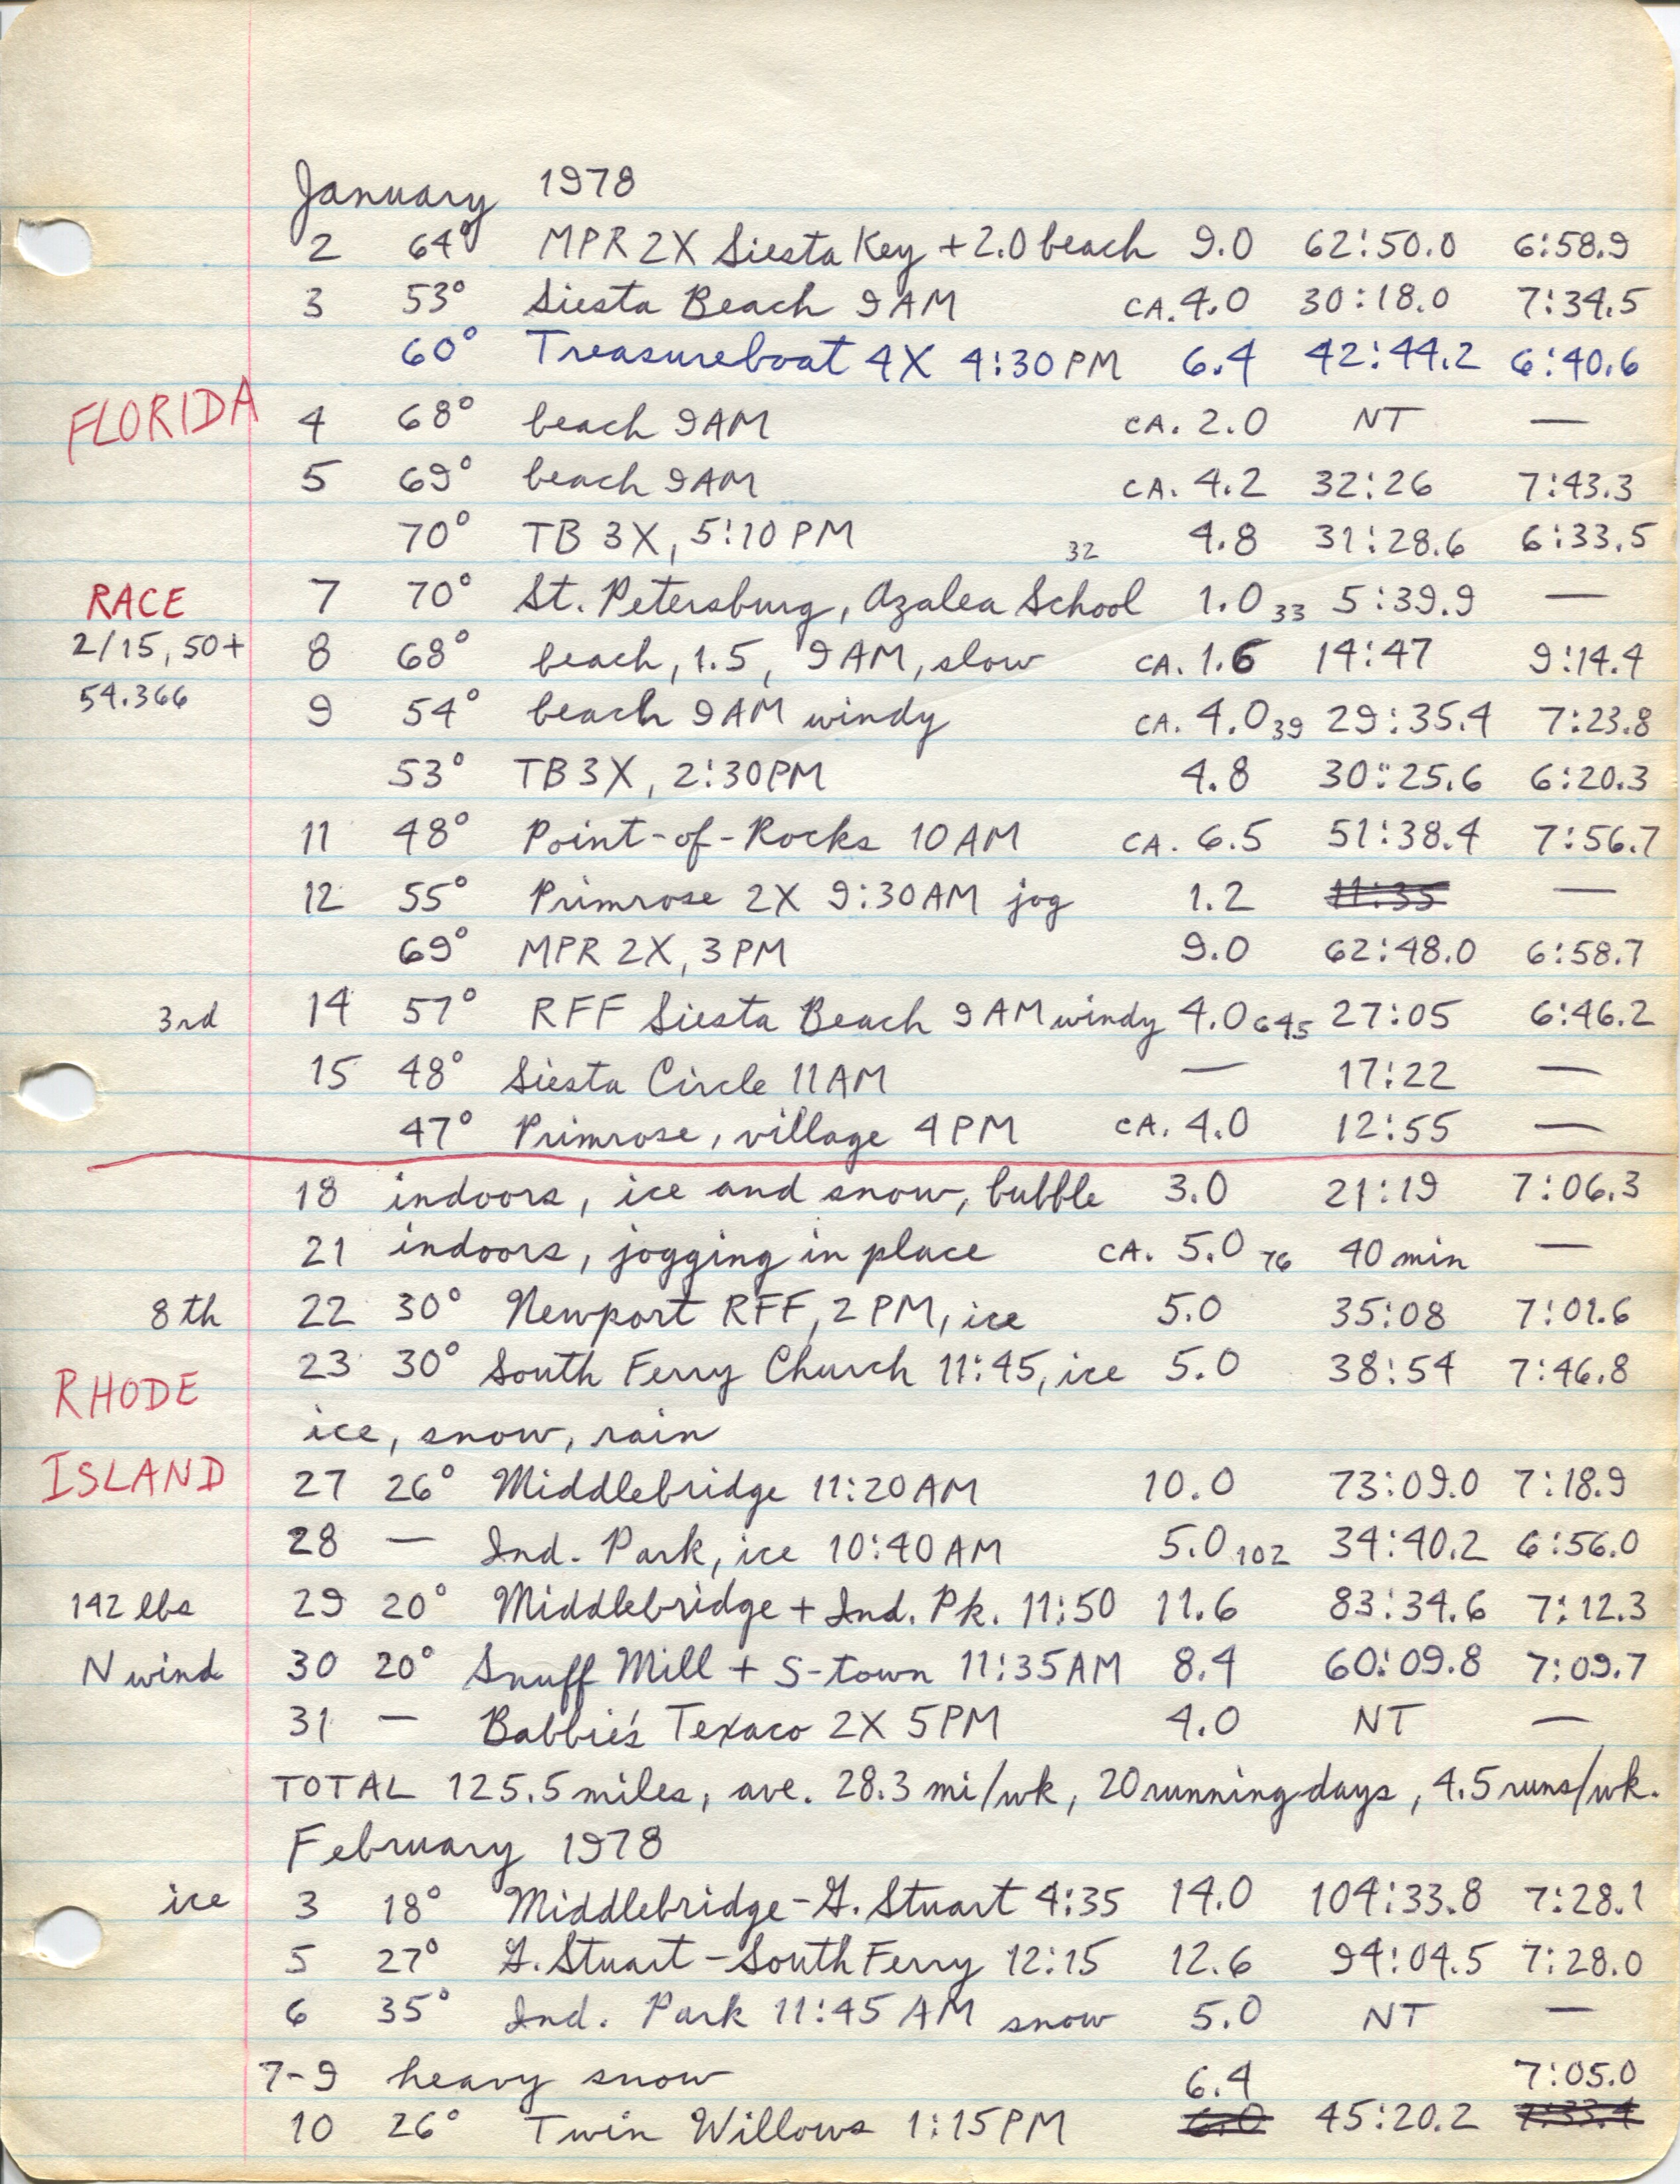 January 1978
2 64° MPR 2X Siesta Key + 2.0 beach 9.0 62:50.0 6:58.9
3 53° Siesta Beach 9AM CA. 4.0 30:18.0 7:34.5
60° Treasureboat 4X 4:30PM 6.4 42:44.2 6:40.6
FLORIDA 4 68° beach 9AM CA. 2.0 NT —
5 69° beach 9AM CA. 4.2 32:26 7:43.3
70° TB 3X, 5:10 PM 32 4.8 31:28.6 6:33.5
RACE 7 70° St. Petersburg, Azalea School 1.0 33 5:39.9 —
2/15, 50+ 8 68° beach, 1.5, 9AM, slow CA. 1.6 14:47 9:14.4
54.366 9 54° beach 9AM windy CA. 4.0 39 29:35.4 7:23.8
53° TB 3X, 2:30PM 4.8 30:25.6 6:20.3
11 48° Point-of-Rocks 10AM CA. 6.5 51:38.4 7:56.7
12 55° Primrose 2X 9:30AM jog 1.2 11:35 —
69° MPR 2X, 3PM 9.0 62:48.0 6:58.7
3rd 14 57° RFF Siesta Beach 9AM windy 4.0 645 27:05 6:46.2
15 48° Siesta Circle 11AM — 17:22 —
47° Primrose, village 4PM CA. 4.0 12:55 —
18 indoors, ice and snow, bubble 3.0 21:19 7:06.3
21 indoors, jogging in place CA. 5.0 76 40 min —
8th 22 30° Newport RFF, 2PM, ice 5.0 35:08 7:01.6
23 30° South Ferry Church 11:45, ice 5.0 38:54 7:46.8
RHODE
ice, snow, rain
ISLAND 27 26° Middlebridge 11:20AM 10.0 73:09.0 7:18.9
28 — Ind. Park, ice 10:40AM 5.0 102 34:40.2 6:56.0
142 lbs 29 20° Middlebridge + Ind. Pk. 11:50 11.6 83:34.6 7:12.3
N wind 30 20° Snuff Mill + S-town 11:35AM 8.4 60:09.8 7:09.7
31 — Babbie's Texaco 2X 5PM 4.0 NT —
TOTAL 125.5 miles, ave. 28.3 mi/wk, 20 running days, 4.5 runs/wk.
February 1978
ice 3 18° Middlebridge-G. Stuart 4:35 14.0 104:33.8 7:28.1
5 27° G. Stuart-South Ferry 12:15 12.6 94:04.5 7:28.0
6 35° Ind. Park 11:45 AM snow 5.0 NT —
7-9 heavy snow 6.4 7:05.0
10 26° Twin Willows 1:15PM 6.0 45:20.2 7:33.4